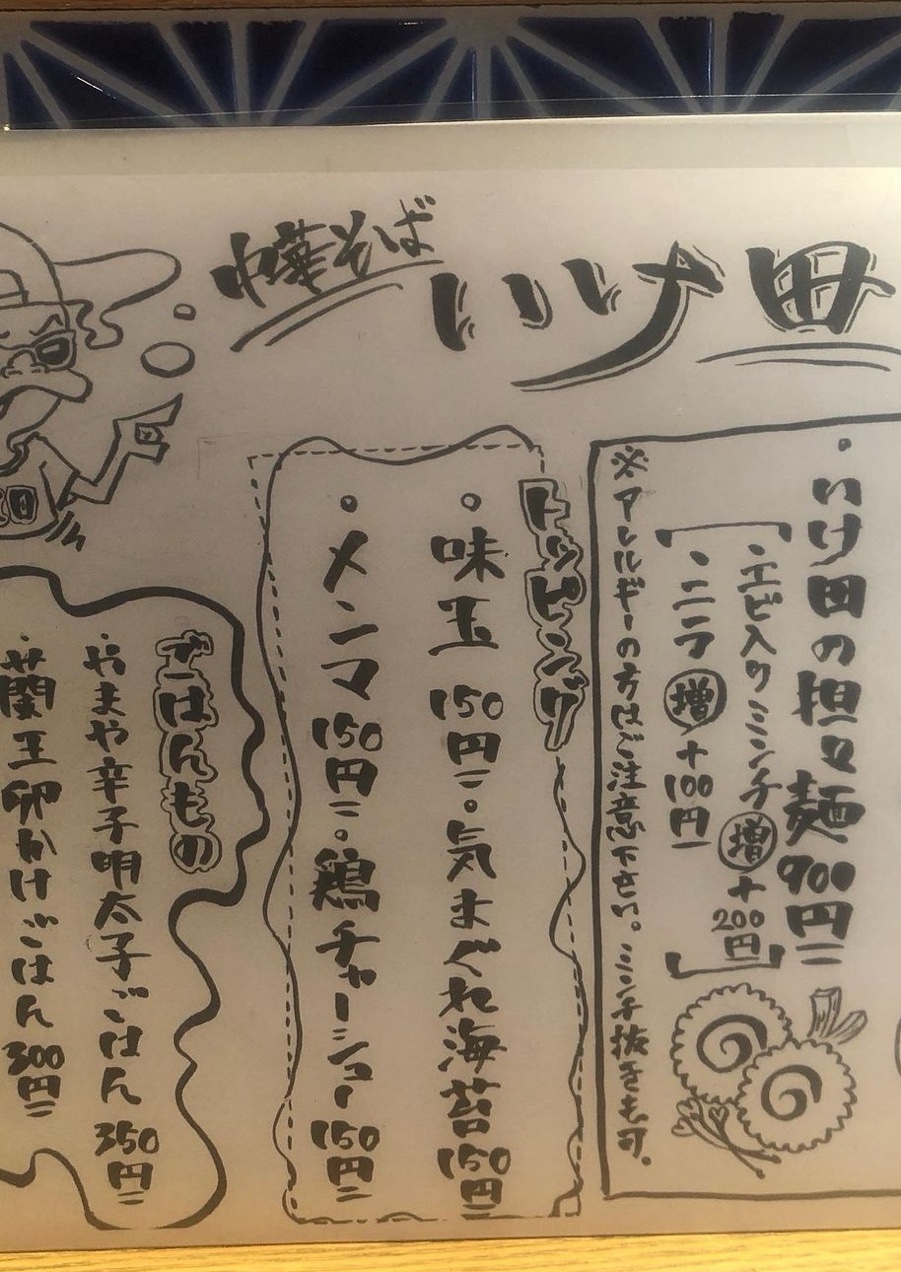 中華そば
いけ田
・いけ田の担々麺 900円
・エビ入りミンチ増+200円
・ニラ増+100円
※アレルギーの方はご注意下さい。ミンチ抜きも可。
トッピング
・味玉 150円 ・気まぐれ海苔 150円
・メンマ 150円 ・鶏チャーシュー 150円
ごはんもの
・やまや辛子明太子ごはん 350円
・蘭王卵かけごはん 300円